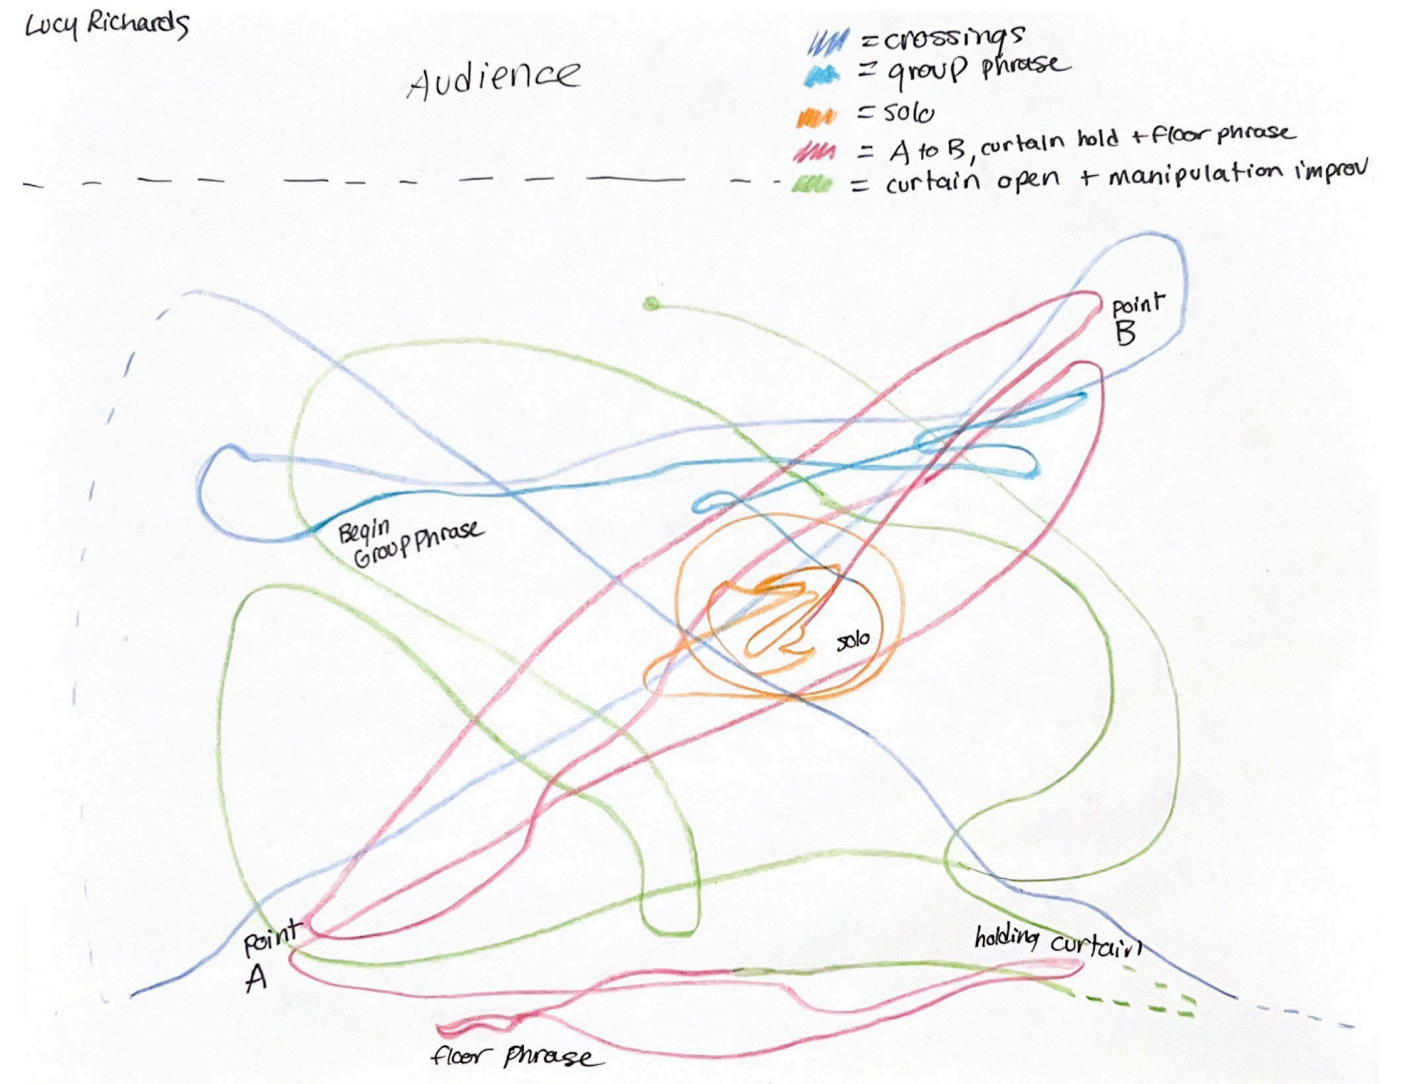 Lucy Richards
Audience
= crossings
= group phrase
= solo
= A to B, curtain hold + floor phrase
= curtain open + manipulation improv
Point
B
Begin
Group Phrase
solo
Point
A
holding curtain
floor phrase